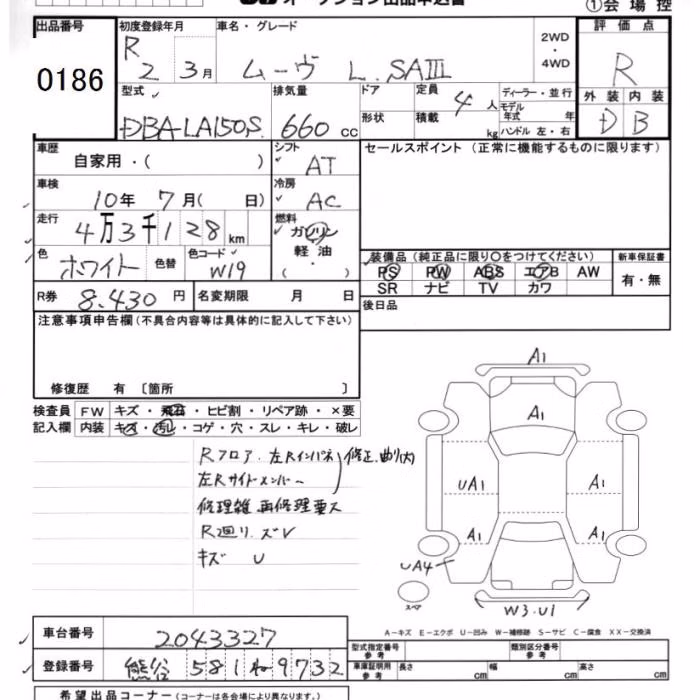 オークション出品申込書
①会場控
出品番号 0186
初度登録年月 R 2 3月
車名・グレード ムーヴ L.SAⅢ
2WD・4WD
評価点 R
外装 内装
D B
型式 DBA-LA150S
排気量 660 cc
ドア
形状
定員 4 人
積載 kg
ディーラー・並行
モデル年式 年
ハンドル 左・右
車歴 自家用・( )
シフト AT
セールスポイント(正常に機能するものに限ります)
車検 10年 7月( 日)
冷房 AC
走行 4万3千128 km
燃料 ガソリン 軽油 ・( )
色 ホワイト 色替
色コード W19
装備品(純正品に限り○をつけてください)
新車保証書
PS PW ABS エアB AW
有・無
SR ナビ TV カワ
R券 8,430 円
名変期限 月 日
後日品
注意事項申告欄(不具合内容等は具体的に記入して下さい)
修復歴 有 〔箇所 〕
検査員 FW キズ・飛石・ヒビ割・リペア跡・×要
記入欄 内装 キズ・汚レ・コゲ・穴・スレ・キレ・破レ
Rフロア.左Rインパネ 修正.曲り(大)
左Rサイドメンバー
修理雑 再修理要ス
R廻り.ズレ
キズ U
A1
A1
UA1 A1
A1 A1
UA4
スペア
W3.U1
A-キズ E-エクボ U-凹み W-補修跡 S-サビ C-腐食 XX-交換済
車台番号 2043327
登録番号 熊谷 581 ね 9732
型式指定番号 参考
類別区分番号 参考
車庫証明用 参考
長さ cm 幅 cm 高さ cm
希望出品コーナー(コーナーは各会場により異なります。)